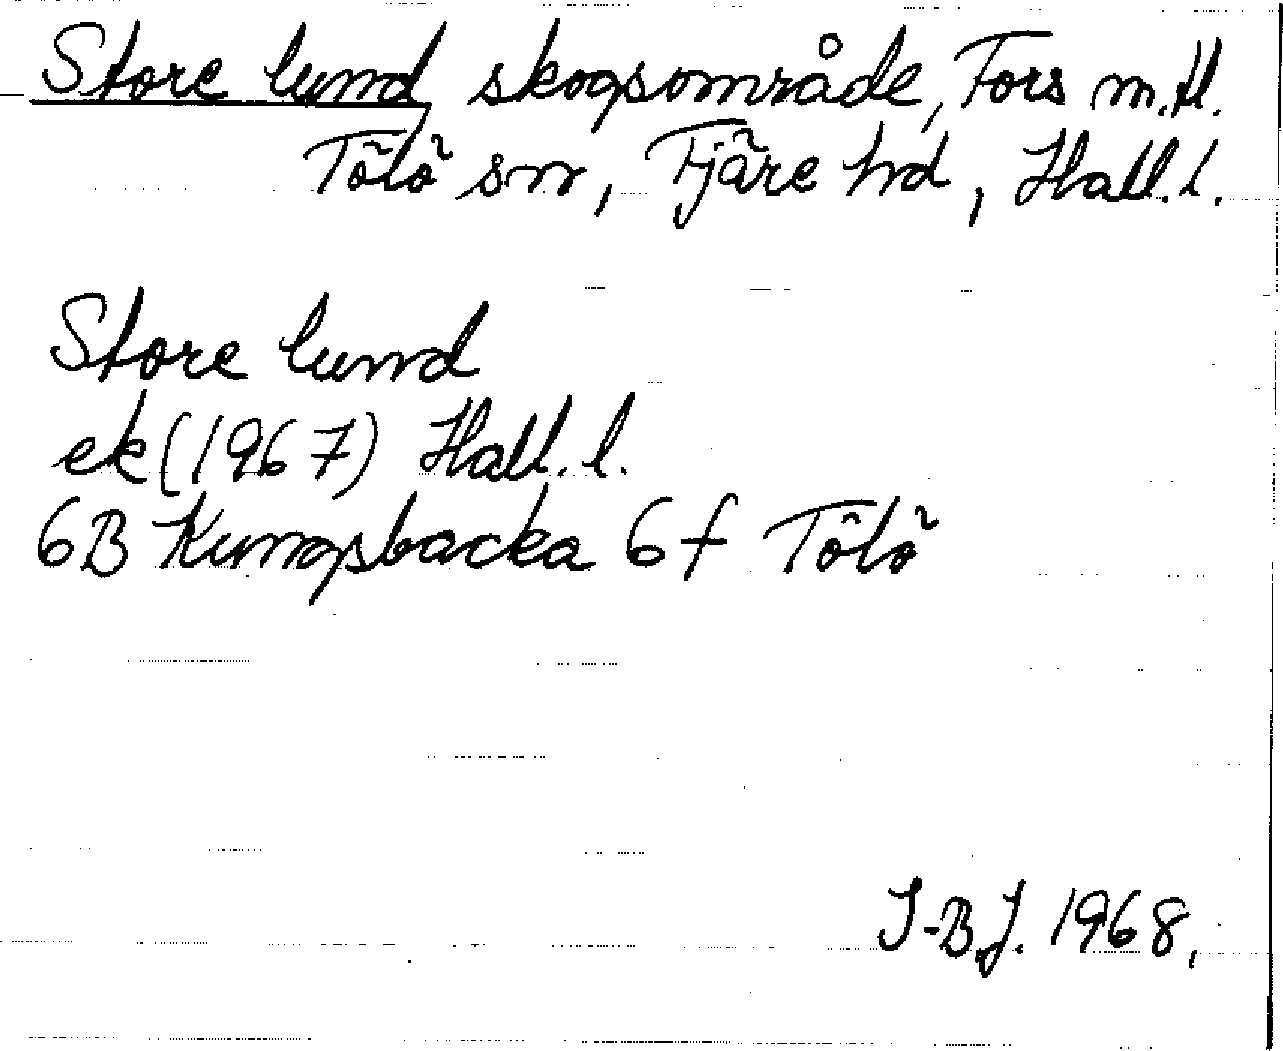 Store lund, skogsområde, Fors m.fl.
Tölö sn, Fjäre hd, Hall. l.
Store lund
ek (1967) Hall. l.
6B Kungsbacka 6f Tölö
I-B.J. 1968.